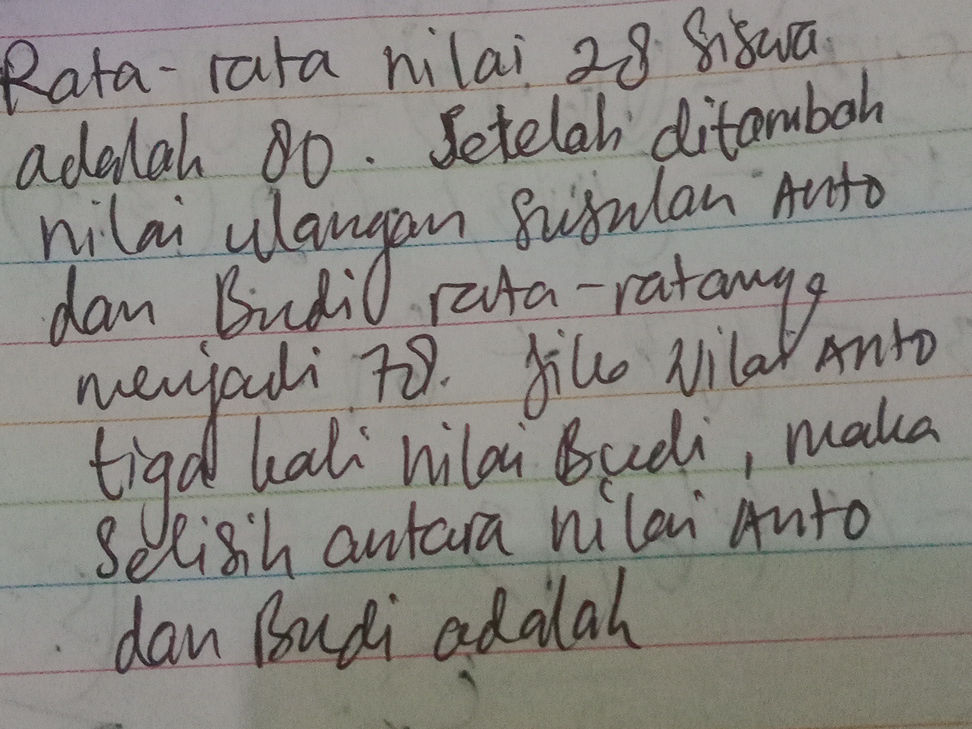 Rata-rata nilai 28 siswa
adalah 80. Setelah ditambah
nilai ulangan susulan Anto
dan Budi rata-ratanya
menjadi 78. Jika Nilai Anto
tiga kali nilai Budi, maka
Selisih antara nilai Anto
dan Budi adalah